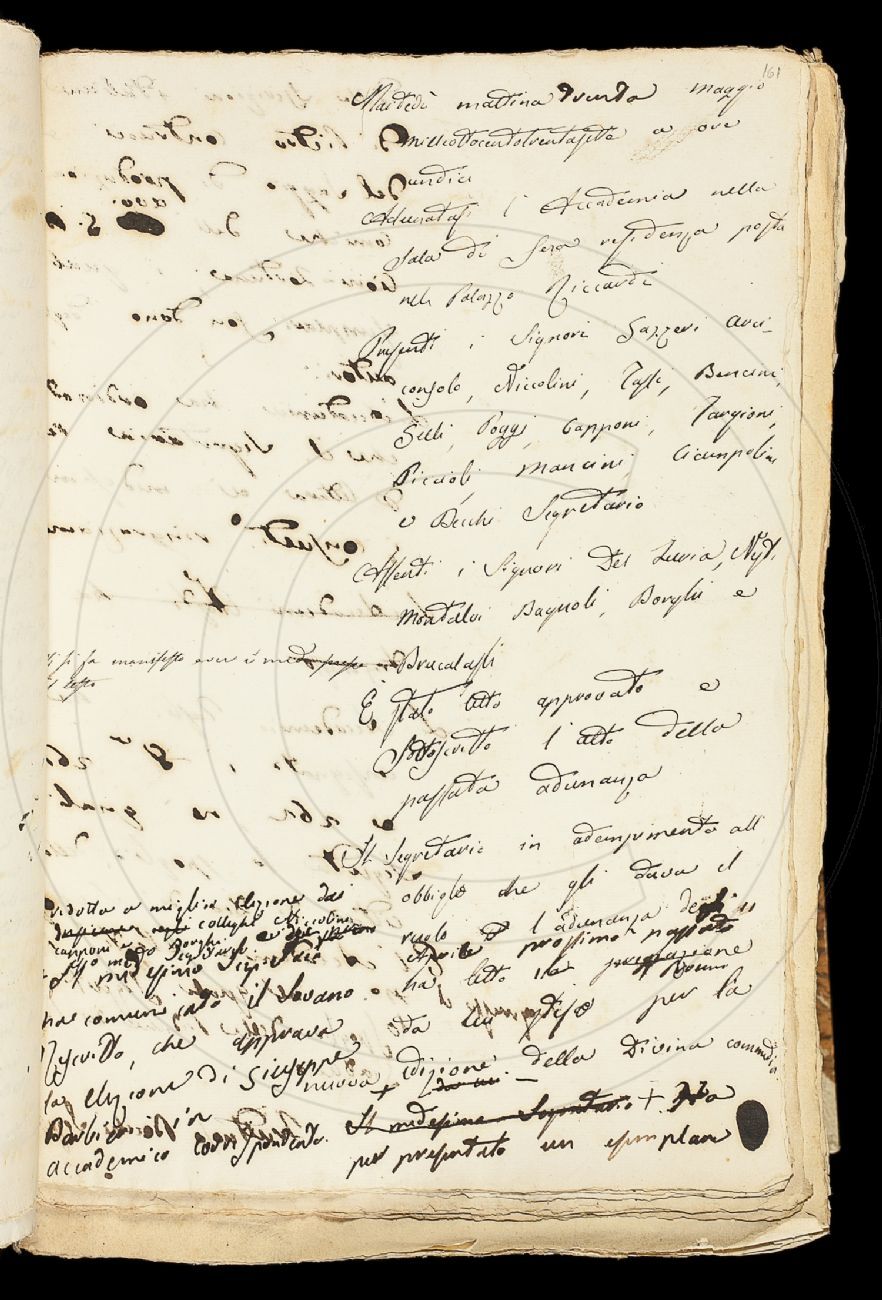 161
Martedì mattina trenta maggio
milleottocentotrentasette a ore
undici
Adunatasi l'Accademia nella
sala di sera residenza posta
nel Palazzo Riccardi
Presenti i Signori Gazzeri arci-
consolo, Niccolini, Tassi, Bencini,
Selli, Poggi, Capponi, Targioni,
Piccioli, Mancini, Ciampolini
e Becchi Segretario
Assenti i Signori Del Furia, Nesti
Montalvi Bagnoli, Borghi e
Brucalassi
È stato letto approvato e
sottoscritto l'atto della
passata adunanza
Il Segretario in adempimento all
obbligo che gli dava il
ruolo l'adunanza degli 11
Aprile prossimo passato
ha letto la
da lui per la
nuova edizione della Divina commedia
Il medesimo Segretario + Ha
pur presentato un esemplare
si fa manifesto
testo
ridotta a miglior lezione dai
colleghi Niccolini
Capponi Borghi e
Il medesimo Segretario
ha comunicato il Sovrano
Rescritto, che approva
la elezione di Giuseppe
Barbieri in
accademico corrispondente.